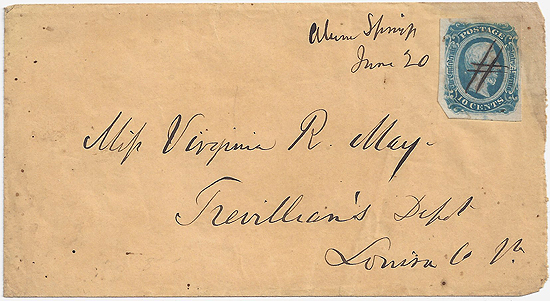 Alum Springs
June 20
POSTAGE
10 CENTS
Miss Virginia R. May
Trevillian's Depot
Louisa Co Va